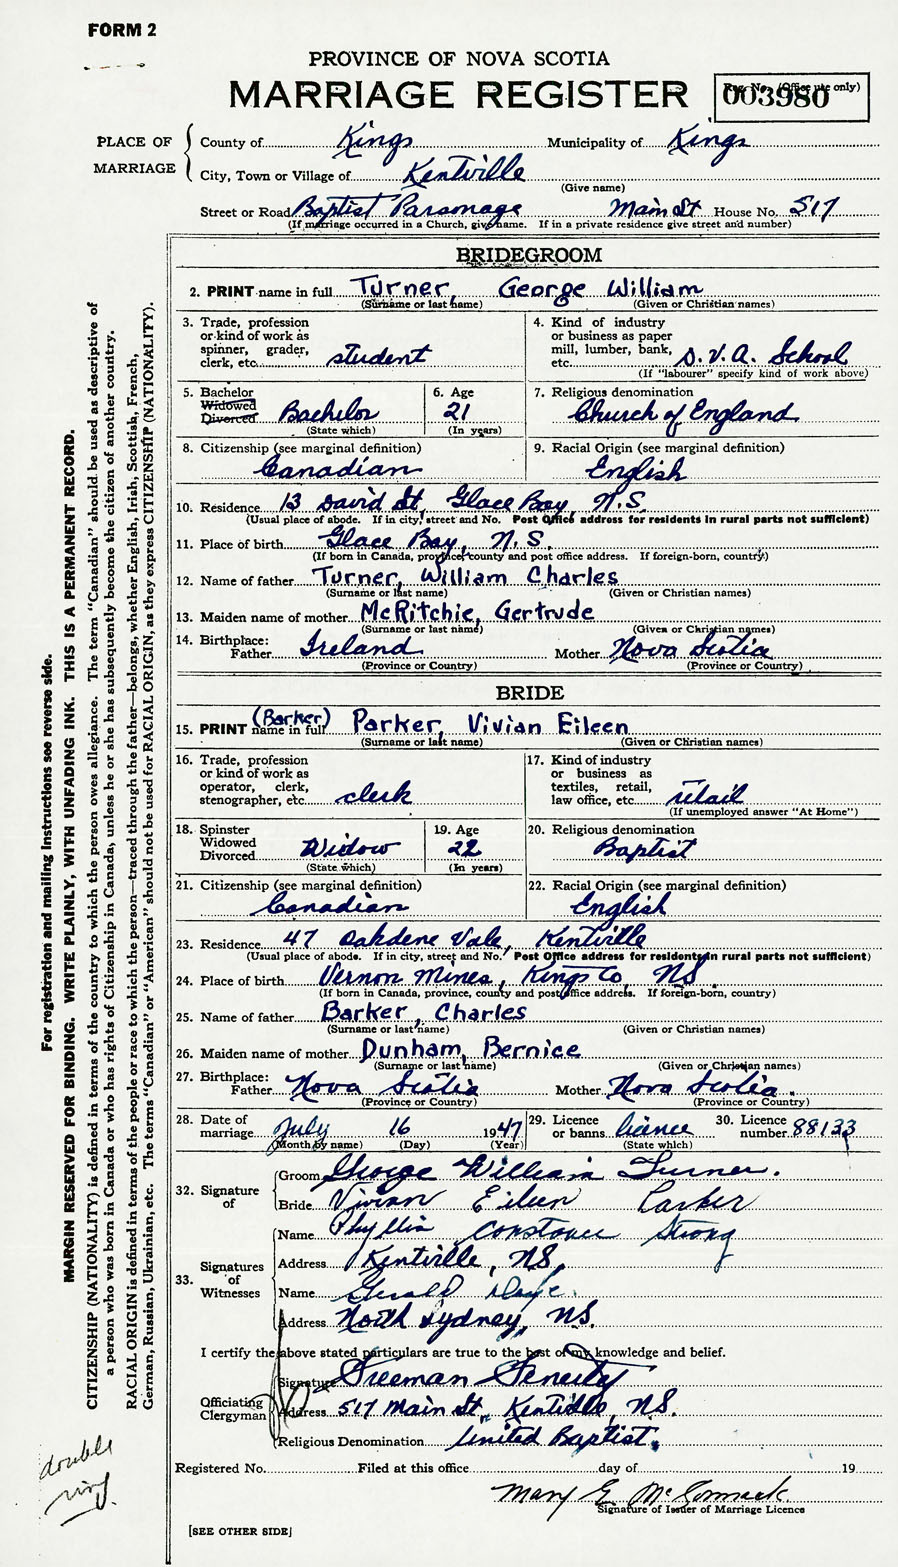 FORM 2
PROVINCE OF NOVA SCOTIA
MARRIAGE REGISTER
Reg. No. (Office use only)
003980
PLACE OF MARRIAGE
County of Kings Municipality of Kings
City, Town or Village of Kentville
(Give name)
Street or Road Baptist Parsonage Main St House No. 517
(If marriage occurred in a Church, give name. If in a private residence give street and number)
BRIDEGROOM
2. PRINT name in full Turner, George William
(Surname or last name) (Given or Christian names)
3. Trade, profession or kind of work as spinner, grader, clerk, etc. student
4. Kind of industry or business as paper mill, lumber, bank, etc. D.V.A. School
(If "labourer" specify kind of work above)
5. Bachelor Widowed Divorced Bachelor
(State which)
6. Age 21
(In years)
7. Religious denomination
Church of England
8. Citizenship (see marginal definition)
Canadian
9. Racial Origin (see marginal definition)
English
10. Residence 13 David St, Glace Bay, N.S.
(Usual place of abode. If in city, street and No. Post Office address for residents in rural parts not sufficient)
11. Place of birth Glace Bay, N.S.
(If born in Canada, province, county and post office address. If foreign-born, country)
12. Name of father Turner, William Charles
(Surname or last name) (Given or Christian names)
13. Maiden name of mother McRitchie, Gertrude
(Surname or last name) (Given or Christian names)
14. Birthplace: Father Ireland Mother Nova Scotia
(Province or Country) (Province or Country)
BRIDE
15. PRINT name in full (Barker) Parker, Vivian Eileen
(Surname or last name) (Given or Christian names)
16. Trade, profession or kind of work as operator, clerk, stenographer, etc. clerk
17. Kind of industry or business as textiles, retail, law office, etc. retail
(If unemployed answer "At Home")
18. Spinster Widowed Divorced Widow
(State which)
19. Age 22
(In years)
20. Religious denomination
Baptist
21. Citizenship (see marginal definition)
Canadian
22. Racial Origin (see marginal definition)
English
23. Residence 47 Oakdene Vale, Kentville
(Usual place of abode. If in city, street and No. Post Office address for residents in rural parts not sufficient)
24. Place of birth Vernon Mines, Kings Co, NS.
(If born in Canada, province, county and post office address. If foreign-born, country)
25. Name of father Barker, Charles
(Surname or last name) (Given or Christian names)
26. Maiden name of mother Dunham, Bernice
(Surname or last name) (Given or Christian names)
27. Birthplace: Father Nova Scotia Mother Nova Scotia.
(Province or Country) (Province or Country)
28. Date of marriage July 16 1947
(Month by name) (Day) (Year)
29. Licence or banns licence
(State which)
30. Licence number 88133
32. Signature of
Groom George William Turner.
Bride Vivian Eileen Parker
33. Signatures of Witnesses
Name Phyllis Constance Strong
Address Kentville, NS,
Name Gerald
Address North Sydney, NS.
I certify the above stated particulars are true to the best of my knowledge and belief.
Officiating Clergyman
Signature Freeman Fenerty
Address 517 Main St., Kentville, NS.
Religious Denomination United Baptist.
Registered No. Filed at this office day of 19
Mary E McCormack
Signature of Issuer of Marriage Licence
[SEE OTHER SIDE]
For registration and mailing instructions see reverse side.
MARGIN RESERVED FOR BINDING. WRITE PLAINLY, WITH UNFADING INK. THIS IS A PERMANENT RECORD.
CITIZENSHIP (NATIONALITY) is defined in terms of the country to which the person owes allegiance. The term "Canadian" should be used as descriptive of
a person who was born in Canada or who has rights of Citizenship in Canada, unless he or she has subsequently become the citizen of another country.
RACIAL ORIGIN is defined in terms of the people or race to which the person—traced through the father—belongs, whether English, Irish, Scottish, French,
German, Russian, Ukrainian, etc. The terms "Canadian" or "American" should not be used for RACIAL ORIGIN, as they express CITIZENSHIP (NATIONALITY).
double
ring